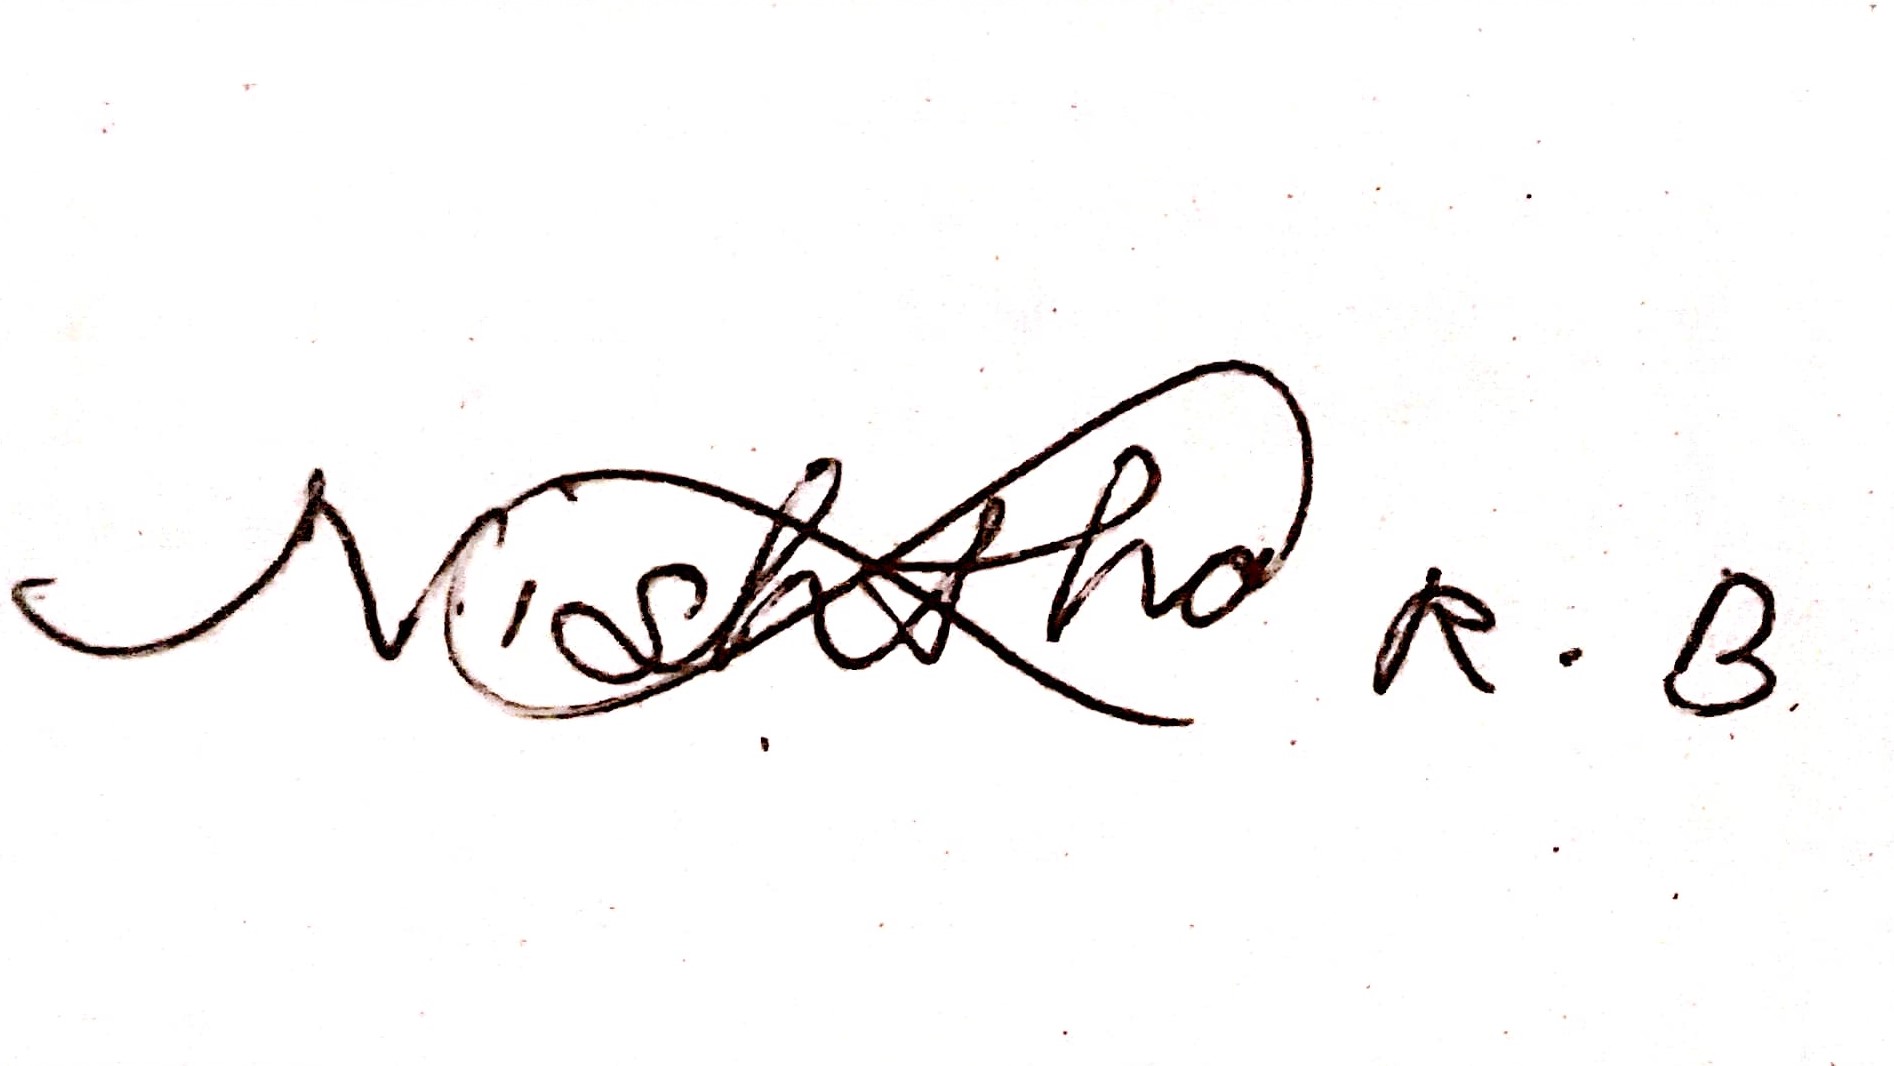 Nishtha R. B.